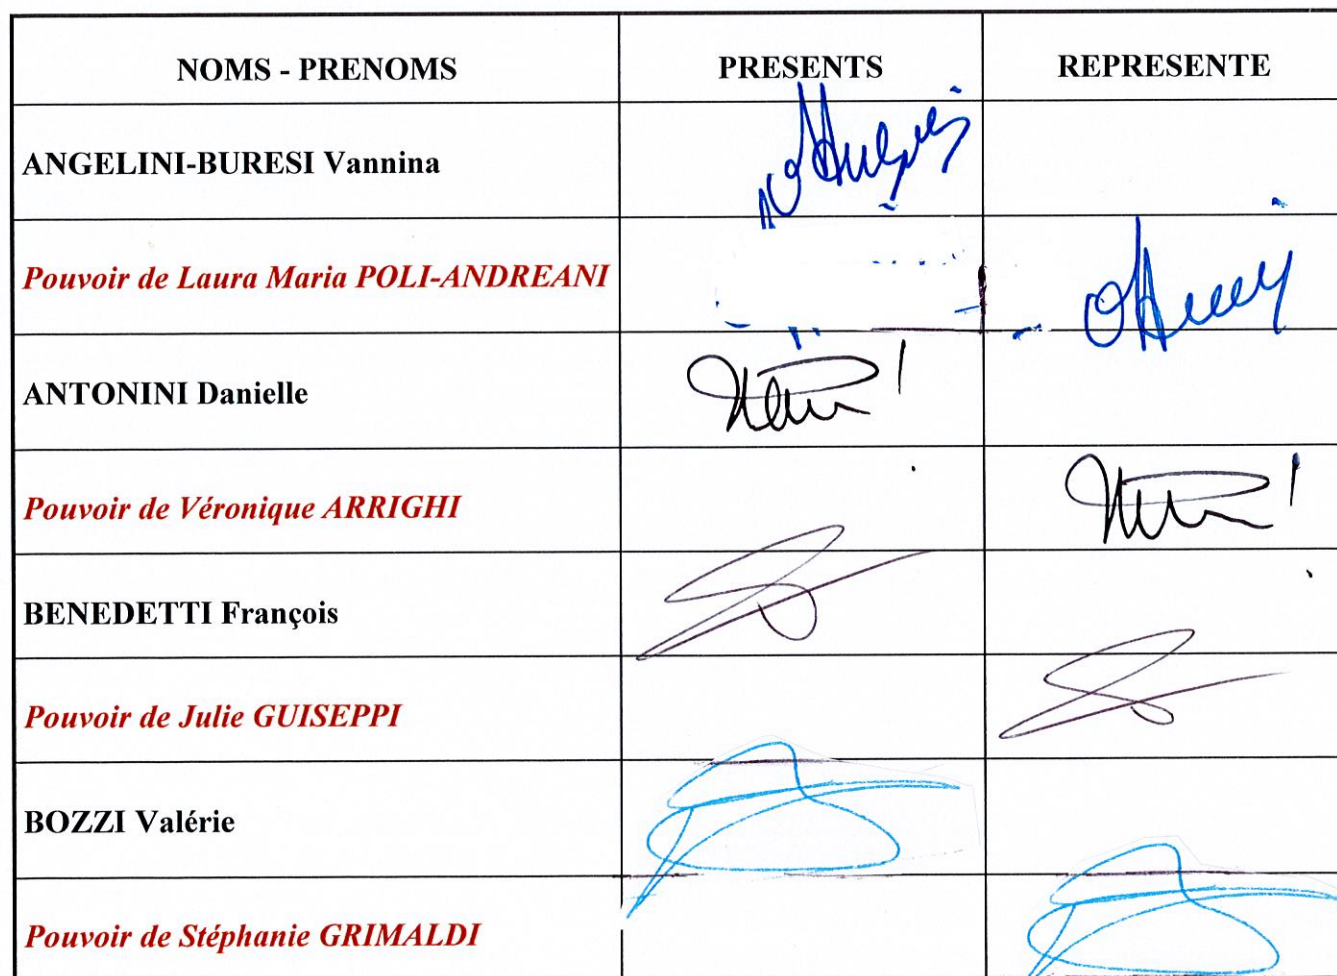 NOMS - PRENOMS PRESENTS REPRESENTE
ANGELINI-BURESI Vannina
Pouvoir de Laura Maria POLI-ANDREANI
ANTONINI Danielle
Pouvoir de Véronique ARRIGHI
BENEDETTI François
Pouvoir de Julie GUISEPPI
BOZZI Valérie
Pouvoir de Stéphanie GRIMALDI